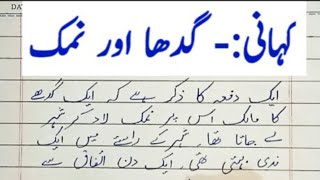 کہانی:- گدھا اور نمک
ایک دفعہ کا ذکر ہے کہ ایک گدھے
کا مالک اس پر نمک لاد کر شہر
لے جاتا تھا۔ شہر کے راستے میں ایک
ندی بہتی تھی۔ ایک دن اتفاق سے